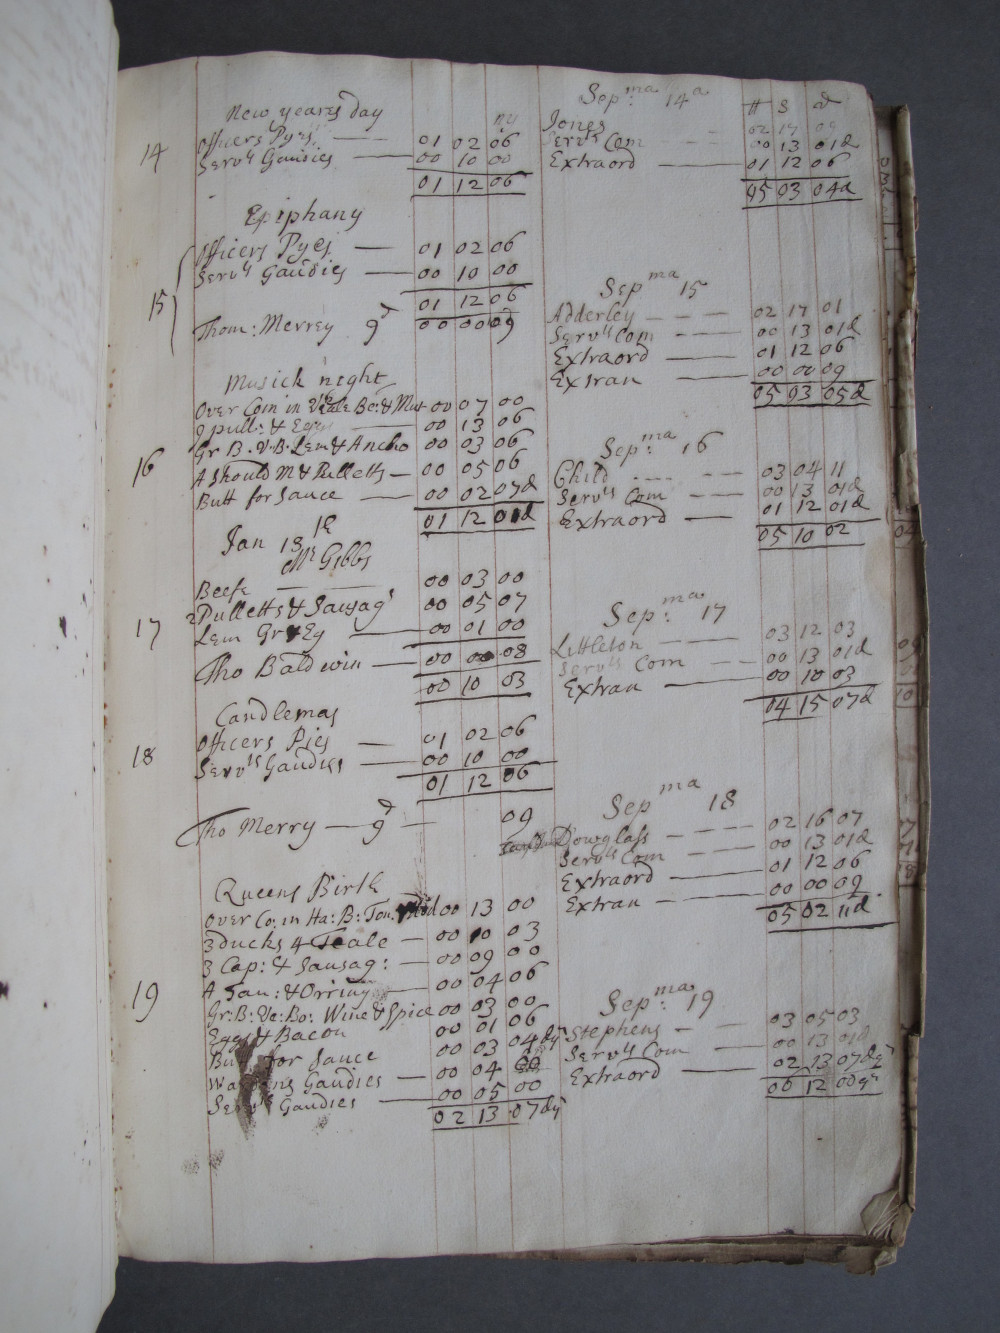 New years day
14 Officers Pyes 01 02 06
Servts Gaudies 00 10 00
01 12 06
Epiphany
Officers Pyes 01 02 06
Servts Gaudies 00 10 00
15 01 12 06
Thom: Merrey 9d 00 00 09
Musick night
Over Com in Veale Bo: & Mut 00 07 00
9 pull: & Eggs 00 13 06
Gr B. V. B. Lem & Ancho 00 03 06
16 A Should M & Pulletts 00 05 06
Butt for Sauce 00 02 07d
01 12 01d
Jan 18
Mr Gibbs
Beefe 00 03 00
2 Pulletts & Sausags 00 05 07
17 Lem Gr & Eg 00 01 00
Tho Baldwin 00 00 08
00 10 03
Candlemas
18 Officers Pies 01 02 06
Servts Gaudies 00 10 00
01 12 06
Tho Merry 9d 09
Queens Birth
Over Co: in Ha: B: Ton. 00 13 00
3 ducks 4 Teale 00 10 03
3 Cap: & Sausag: 00 09 00
19 A Tan: & Orring 00 04 06
Gr: B: Ve: Bo: Wine & Spice 00 03 00
Eggs & Bacon 00 01 06
Butt for Sauce 00 03 04dq
Gaudies 00 04
Servts Gaudies 00 05 00
02 13 07dq
Sepma: 14a
ll s d
Jones 02 17 09
Servts Com 00 13 01d
Extraord 01 12 06
05 03 04d
Sepma 15
Adderley 02 17 01
Servts Com 00 13 01d
Extraord 01 12 06
Extran 00 00 09
05 03 05d
Sepma: 16
Child 03 04 11
Servts Com 00 13 01d
Extraord 01 12 01d
05 10 02
Sepma: 17
Littleton 03 12 03
Servts Com 00 13 01d
Extran 00 10 03
04 15 07d
Sepma 18
Dowglass 02 16 07
Servts Com 00 13 01d
Extraord 01 12 06
Extran 00 00 09
05 02 11d
Sepma: 19
Stephens 03 05 03
Servts Com 00 13 01d
Extraord 02 13 07dq
06 12 00q